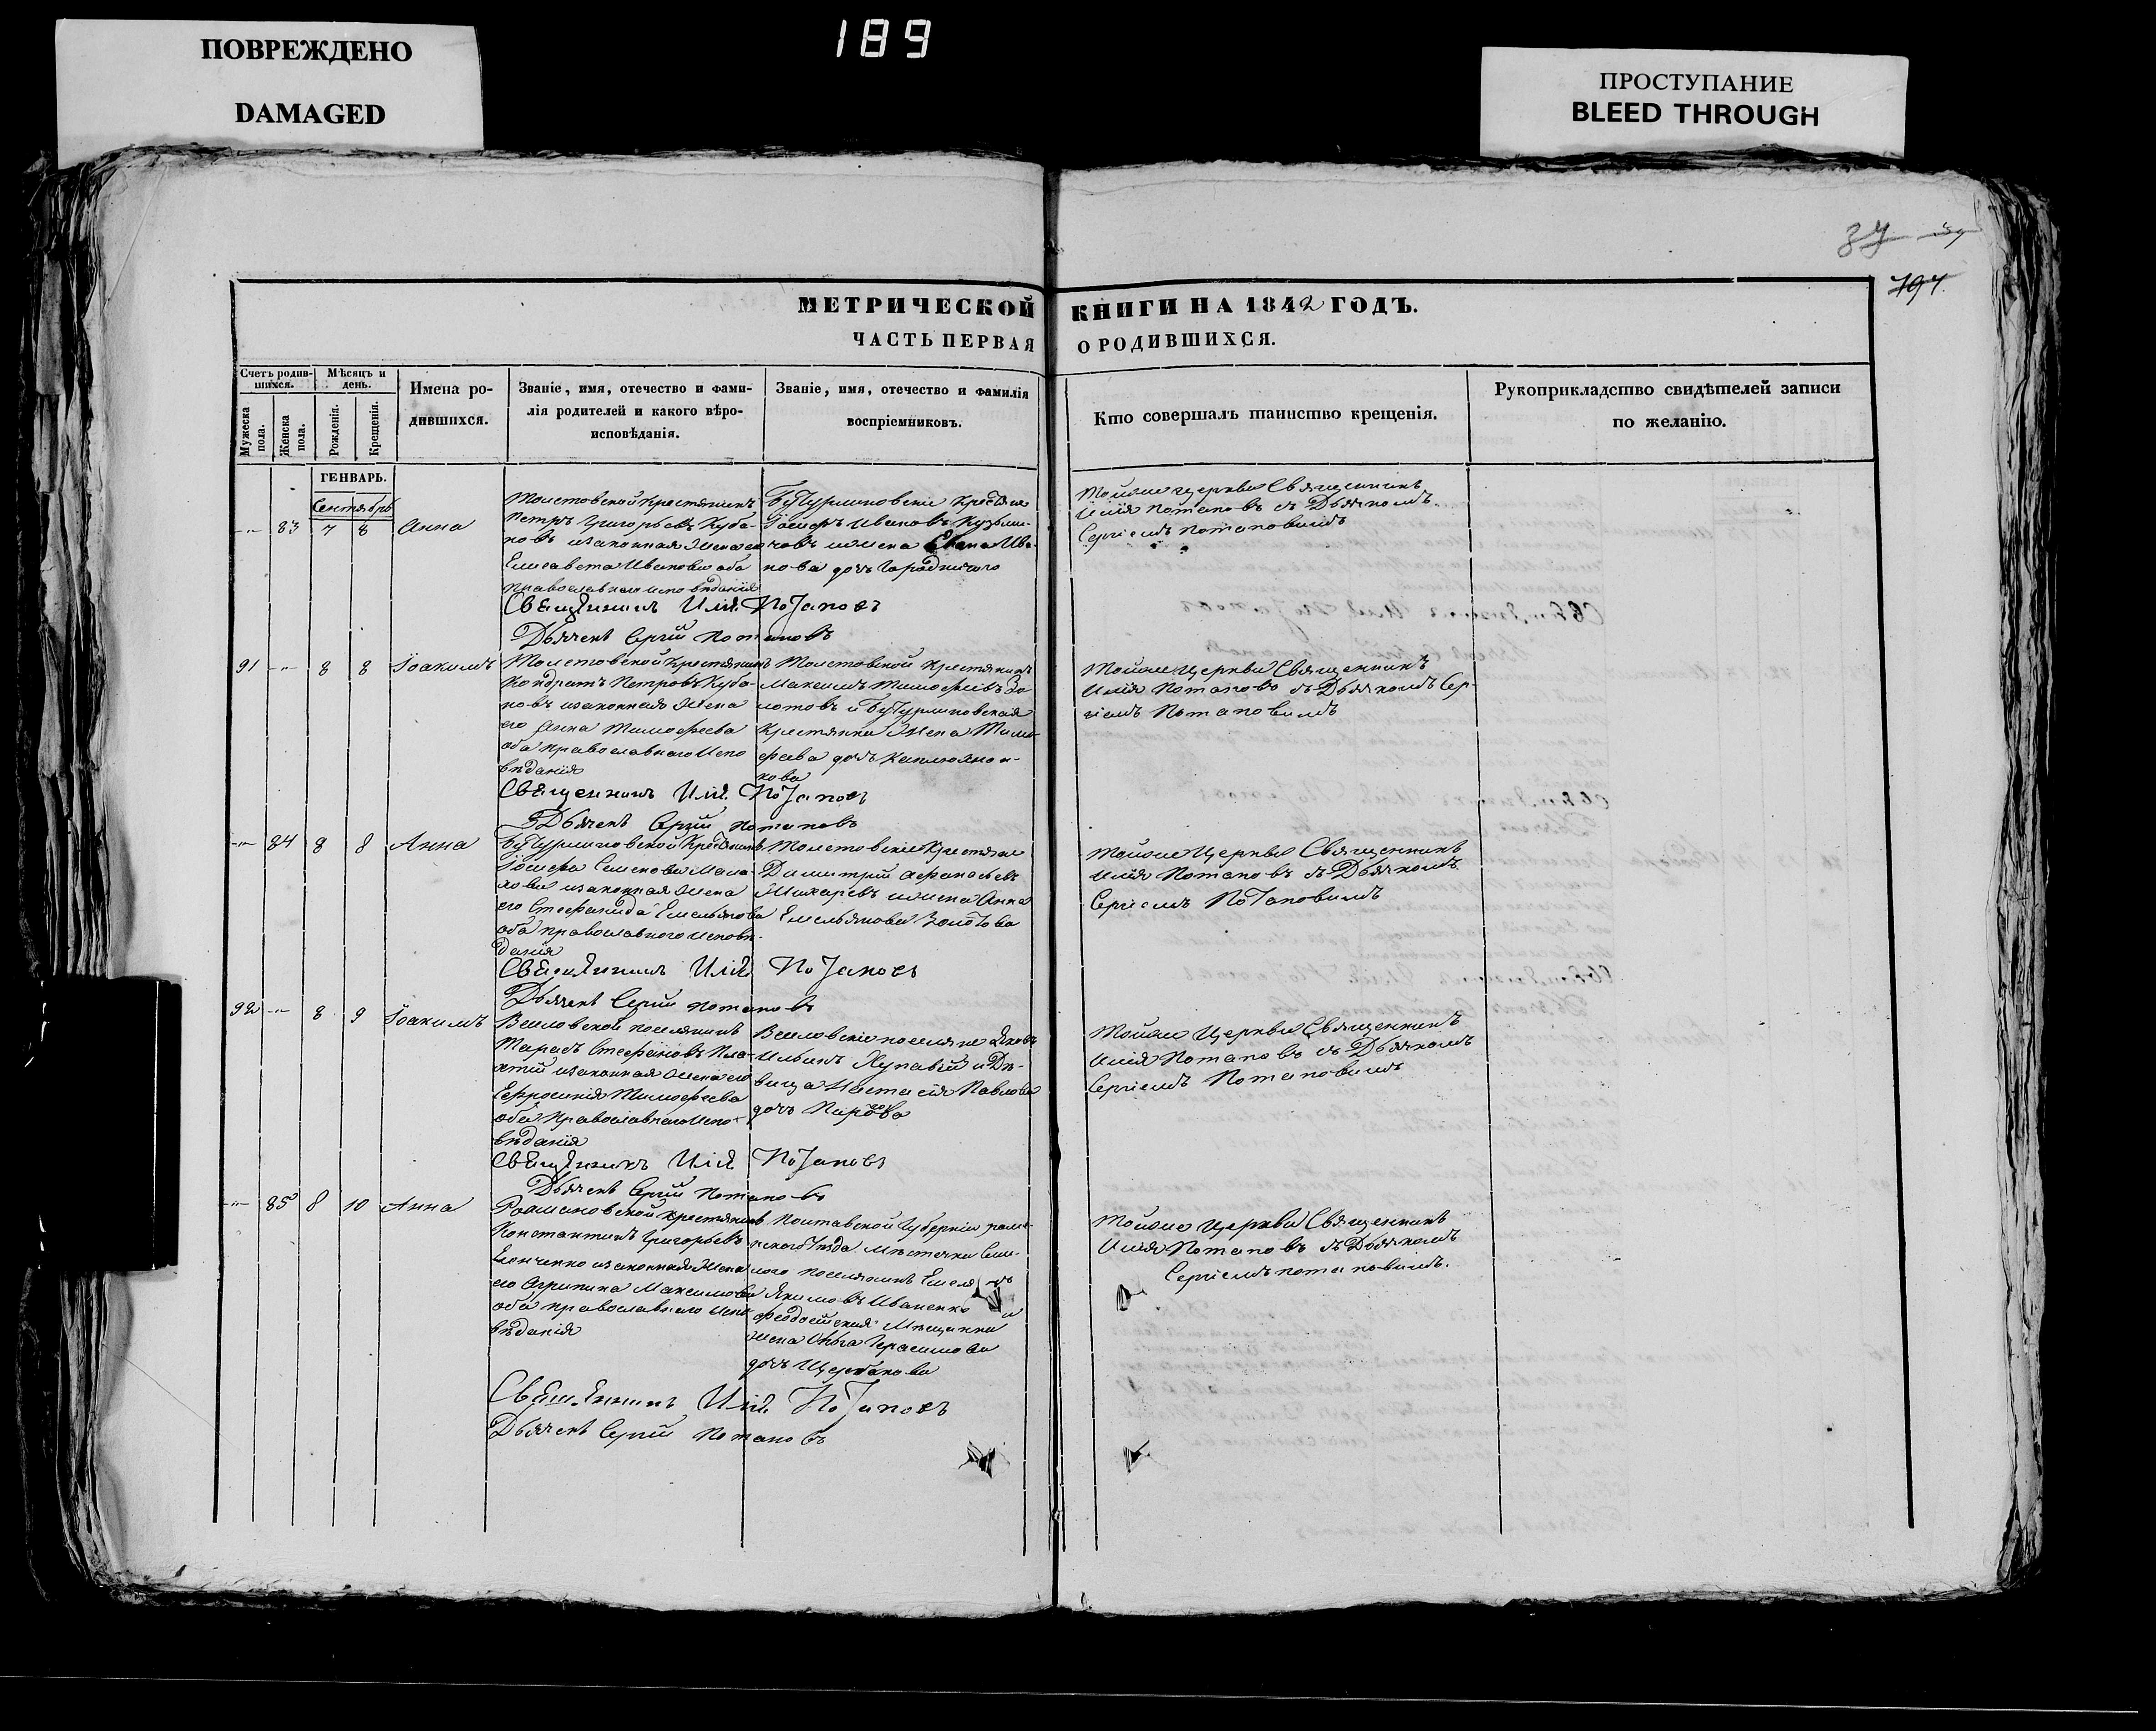 ПОВРЕЖДЕНО
DAMAGED
189
ПРОСТУПАНИЕ
BLEED THROUGH
194.
МЕТРИЧЕСКОЙ КНИГИ НА 1842 ГОДЪ.
ЧАСТЬ ПЕРВАЯ О РОДИВШИХСЯ.
Счетъ родив-
шихся.
Мѣсяцъ и
день.
Мужеска
пола.
Женска
пола.
Рожденія.
Крещенія.
Имена ро-
дившихся.
Званіе, имя, отечество и фами-
лія родителей и какого вѣро-
исповѣданія.
Званіе, имя, отечество и фамилія
воспріемниковъ.
Кто совершалъ таинство крещенія.
Рукоприкладство свидѣтелей записи
по желанію.
ГЕНВАРЬ.
Сентябрь
83 7 8 Анна
Петръ Григорьевъ Куба-
новъ изаконная Жена его
Елисавета Иванова оба
православнаго исповѣданія
Іосифъ Ивановъ Кузьми-
Ива-
нова дочь
Тойже церкви Священникъ
Илія Потаповъ съ Дьячкомъ
Сергіемъ Потаповимъ
Священникъ Илія Потаповъ
Дьячекъ Сергій Потаповъ
91 8 8 Іоакимъ
Кондратъ Петровъ Куба-
новъ изаконная Жена
его Анна Тимофеева
оба православнаго Испо
вѣданія
Крестьянинъ
Максимъ Тимофеевъ Зо-
лотовъ и Бутурлиновская
Крестьянка Жена Тимо-
феева дочь
Тойже Церкви Священникъ
Илія Потаповъ съ Дьячкомъ Сер-
гіемъ Потаповимъ
Священникъ Илія Потаповъ
Дьячекъ Сергій Потаповъ
84 8 8 Анна
Бутурлиновской Крестьянинъ
изаконная Жена
его Стефанида Емельянова
оба православного исповѣ-
данія
Крестьяне
Димитрій Афанасьевъ
Анна
Емельянова Золотова
Тойже Церкви Священникъ
Илія Потаповъ съ Дьячкомъ
Сергіемъ Потаповимъ
Священникъ Илія Потаповъ
Дьячекъ Сергій Потаповъ
92 8 9 Іоакимъ
поселянинъ
Тарасъ Стефановъ
изаконная Жена его
Евфросинія Тимофеева
оба Православнаго Испо-
вѣданія
поселяне Яковъ
Ильинъ и Дѣ-
вица Настасія Павлова
дочь
Тойже Церкви Священникъ
Илія Потаповъ съ Дьячкомъ
Сергіемъ Потаповимъ
Священникъ Илія Потаповъ
Дьячекъ Сергій Потаповъ
85 8 10 Анна
Романовской Крестьянинъ
Константинъ Григорьевъ
изаконная Жена
его Агрипина Максимова
оба православнаго Испо-
вѣданія
Полтавской Губерніи
Уѣзда Мѣстечка
поселянинъ
Якимовъ Иваненко и
Феодосійская Мѣщанка
Жена Ольга Герасимова
дочь Щербакова
Тойже Церкви Священникъ
Илія Потаповъ съ Дьячкомъ
Сергіемъ Потаповимъ.
Священникъ Илія Потаповъ
Дьячекъ Сергій Потаповъ